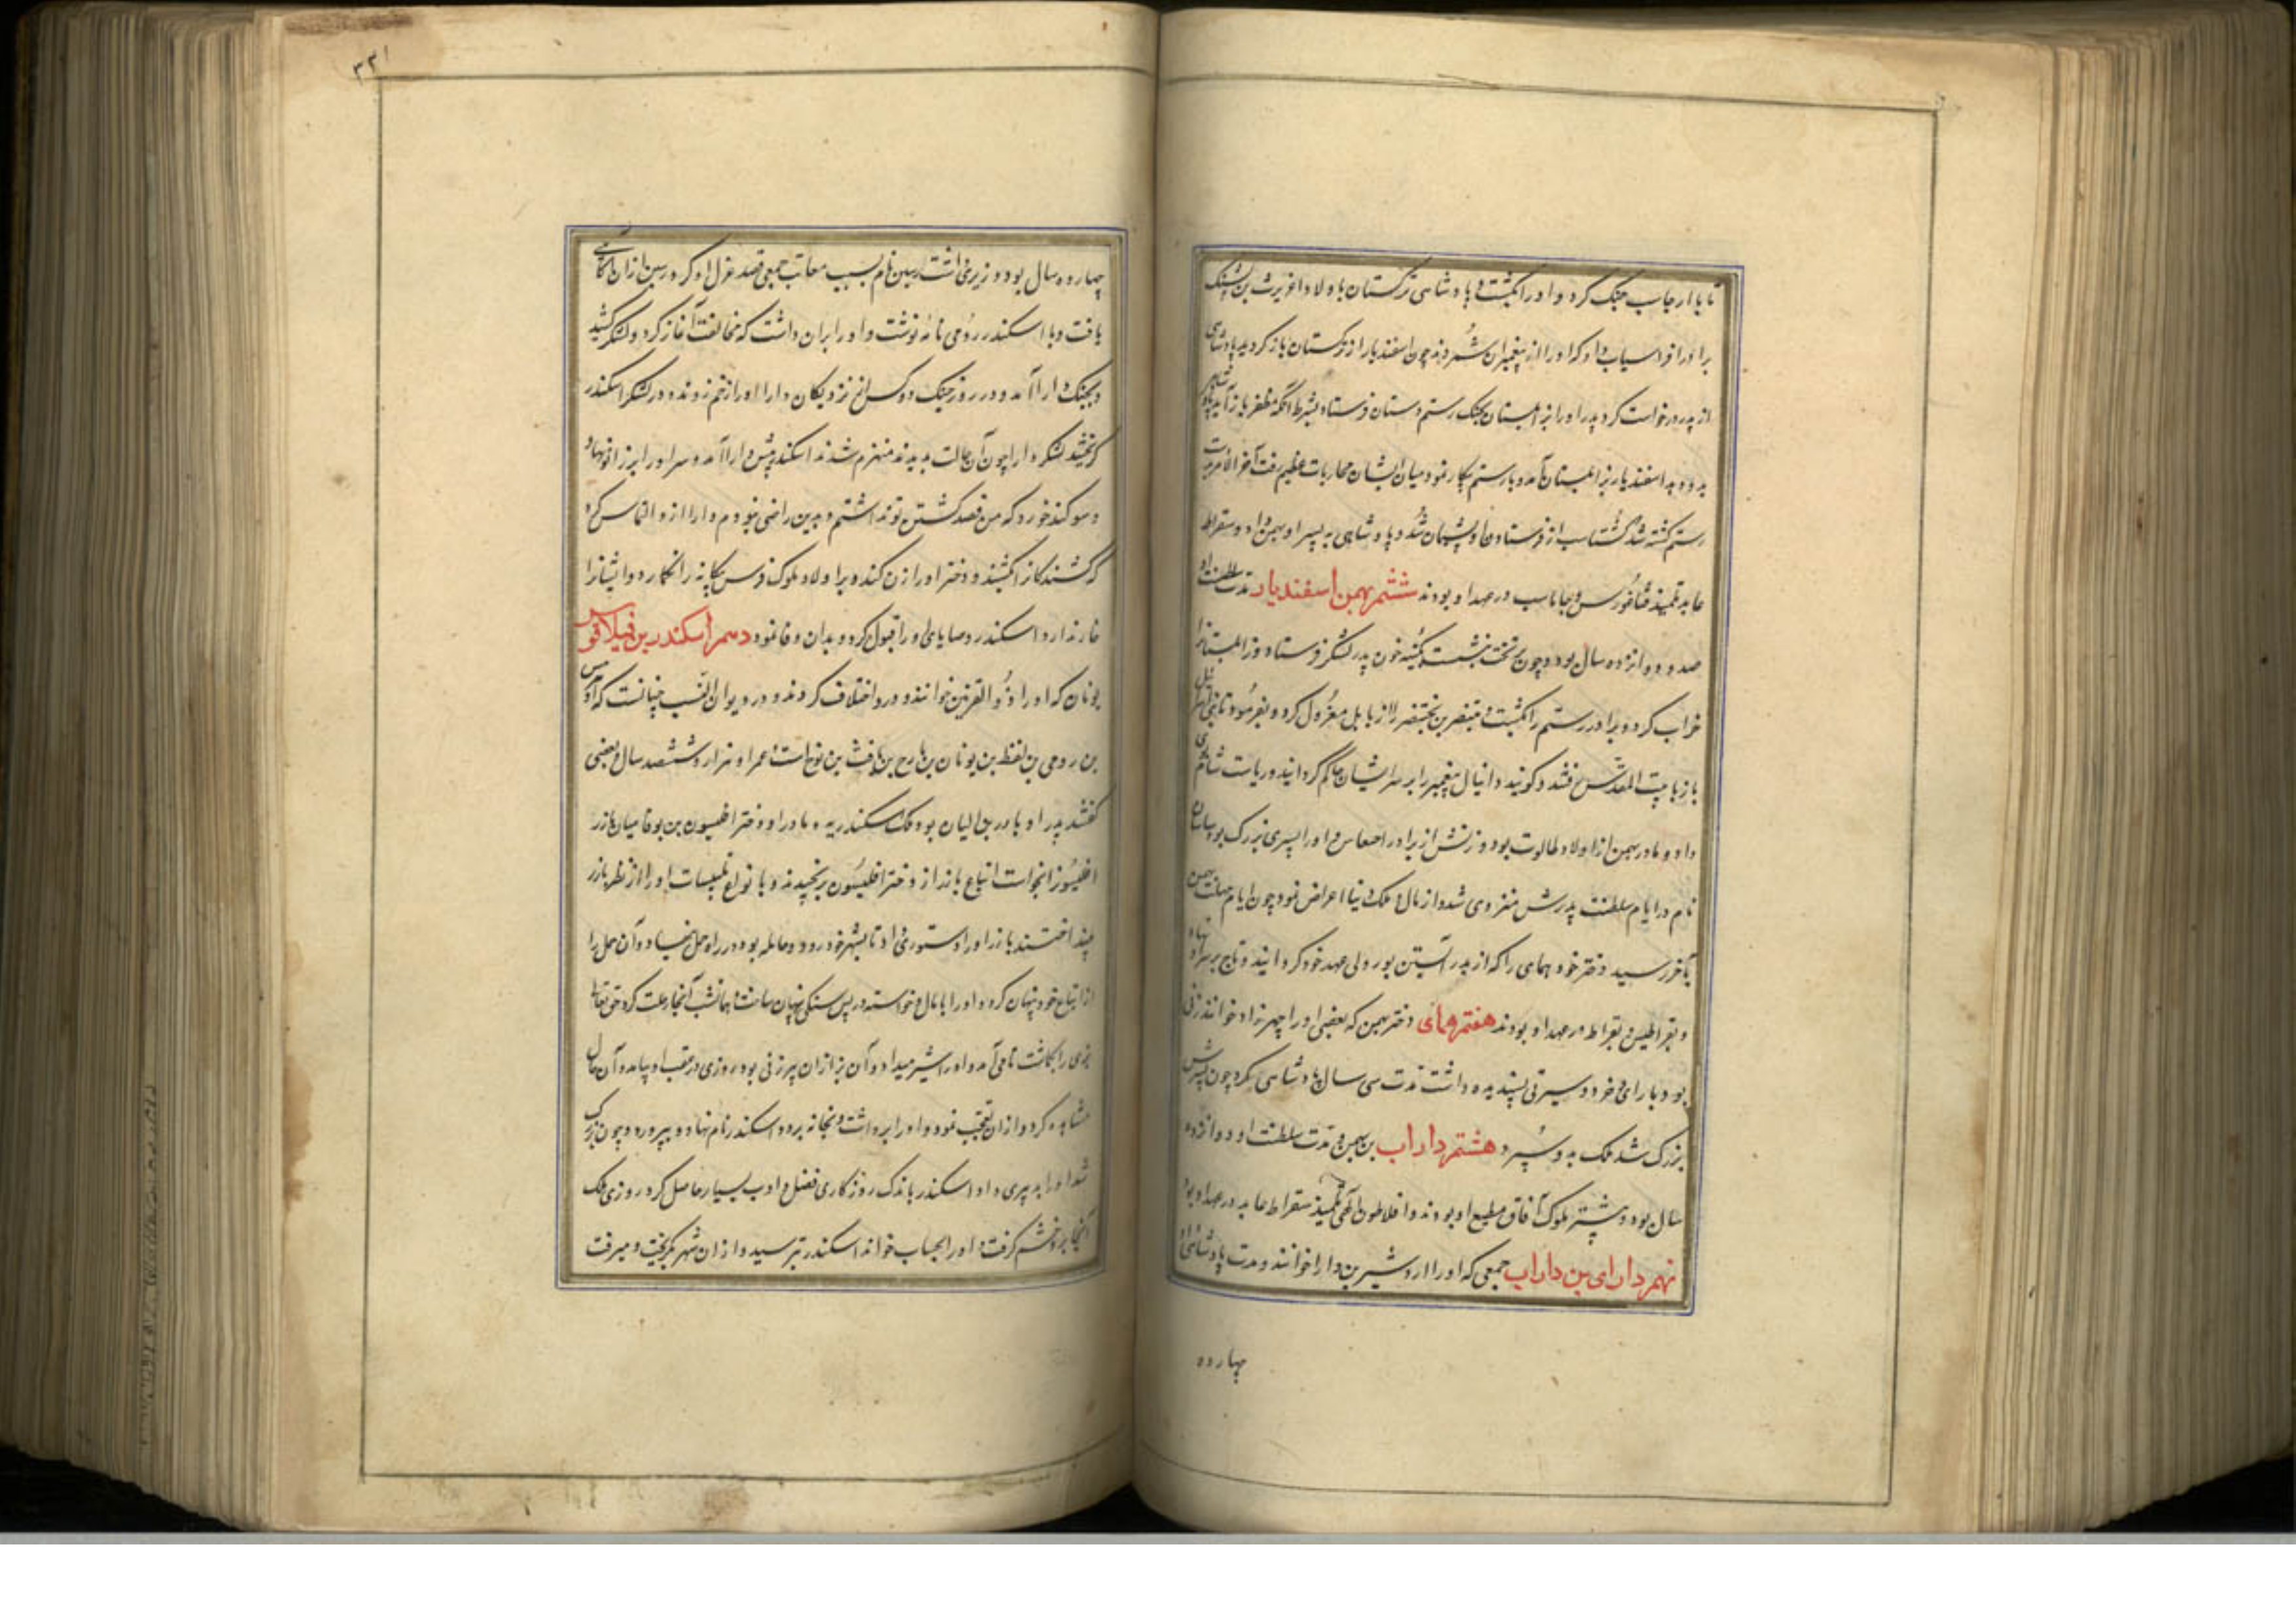 تا با ارجاسب جنک کرد و او را بکشت و پادشاهی ترکستان باولاد اغریرث بن پشنک
برادر افراسیاب داد که او را از پیغمبران شمرده‌اند چون اسفندیار از ترکستان باز کردید پادشاهی
از پدر درخواست کرد پدر او را بزابلستان بجنک رستم دستان فرستاد بشرط آنکه مظفر باز آید پادشاهی
بدو دهد اسفندیار بزابلستان آمد و با رستم پیکار نمود میان ایشان محاربات عظیم رفت آخر الامر بر دست
رستم کشته شد کشتاسب از فرستادن او پشیمان شد و پادشاهی به پسر او بهمن داد و سقراط
عابد تلمیذ فیثاغورس و جاماسب در عهد او بودند ششم بهمن اسفندیار مدت سلطنت او
صد و دوازده سال بود و چون بر تخت نشست بکینه خون پدر لشکر فرستاد و زابلستانرا
خراب کرد و برادر رستم را بکشت و بختنصر را از بابل معزول کرد و بفرمود تا بنی اسرائیل
باز با بیت المقدس شدند و کویند دانیال پیغمبر را بر سر ایشان حاکم کردانید و ریاست شام بوی
داد و مادر بهمن از اولاد طالوت بود و زنش از برادر و او را پسری بزرک بود ساسان
نام در ایام سلطنت پدرش منزوی شد و از مال و ملک دنیا اعراض نمود چون ایام حیات بهمن
بآخر رسید دختر خود همای را که از پدر آبستن بود ولی عهد خود کردانید و تاج بر سر او نهاد
و بقراط در عهد او بودند هفتم همای دختر بهمن که بعضی او را چهرزاد خوانند زنی
بود با رای و خرد و سیرتی پسندیده داشت مدت سی سال پادشاهی کرد چون پسرش
بزرک شد ملک بدو سپرد هشتم داراب بن بهمن مدت سلطنت او دوازده
سال بود و بیشتر ملوک آفاق مطیع او بودند و افلاطون الهی تلمیذ سقراط عابد در عهد او بود
نهم دارای بن داراب جمعی که او را اردشیر بن دارا خوانند و مدت پادشاهی او
چهارده
۳۳۱
چهارده سال بود و وزیری داشت نام بسبب جمعی قصد عزل او کرد از آن آکاهی
یافت و با اسکندر رومی نامه نوشت و او را بران داشت که مخالفت آغاز کرد و لشکر کشید
و بجنک دارا آمد و در روز جنک دو کس از نزدیکان دارا او را زخم زدند و در لشکر اسکندر
کریختند لشکر دارا چون آن حالت بدیدند منهزم شدند اسکندر پیش دارا آمد و سر او را بر زانو نهاد
و سوکند خورد که من قصد کشتن تو نداشتم و بدین راضی نبودم و دارا ازو التماس کرد
که کشندکانرا بکشد و دختر او را زن کند و بر اولاد ملوک فرس بیکانه را نکمارد و ایشانرا
خار ندارد اسکندر وصایای او را قبول کرد و بدان وفا نمود دهم اسکندر بن فیلاقوس
یونان که او را ذو القرنین خوانند و درو اختلاف کردند و در دیوان النسب چنانست که او
بن رومی بن بن یونان بن بن یافث بن نوح است عمر او هزار و ششصد سال و بعضی
کفتند پدر او بود ملک اسکندریه و مادر او دختر میان
انجامید اتباع دختر برنجیدند و بانواع تلبیسات او را از نظر
او را دستوری داد تا بشهر خود رود و حامله بود در راه حمل بنهاد و آن حمل را
از اتباع خود پنهان کرد و او را با مال و خواسته در پس سنکی پنهان ساخت همانشب از آنجا رحلت کرد حق تعالی
بزی را بکماشت تا می آمد و او را شیر میداد و آن بز از آن پیر زنی بود روزی در عقب او بیامد و آن حال
مشاهده کرد و از آن تعجب نمود و او را برداشت و بخانه برد و اسکندر نام نهاد و بپرورد و چون بزرک
شد او را بدبیری داد اسکندر باندک روزکاری فضل و ادب بسیار حاصل کرد روزی ملک
آنجا برو خشم کرفت و او را خواند اسکندر بترسید و از آن شهر بکریخت و میرفت